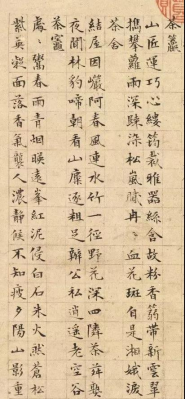 茶籯
山匠運巧心縷筠裁雅器絲含故粉香篛帶新雲翠
攜攀蘿雨深歸染松嵐膩冉〻血花斑自是湘娥淚
茶舍
結屋因巖阿春風連水竹一徑野花深四隣茶荈熟
夜聞林豹啼朝看山麋逐粗足辦公私逍遙老空谷
茶竈
處〻鬻春雨青烟暎遠峰紅泥侵白石朱火然蒼松
紫英凝面落香氣襲人濃靜候不知疲夕陽山影重